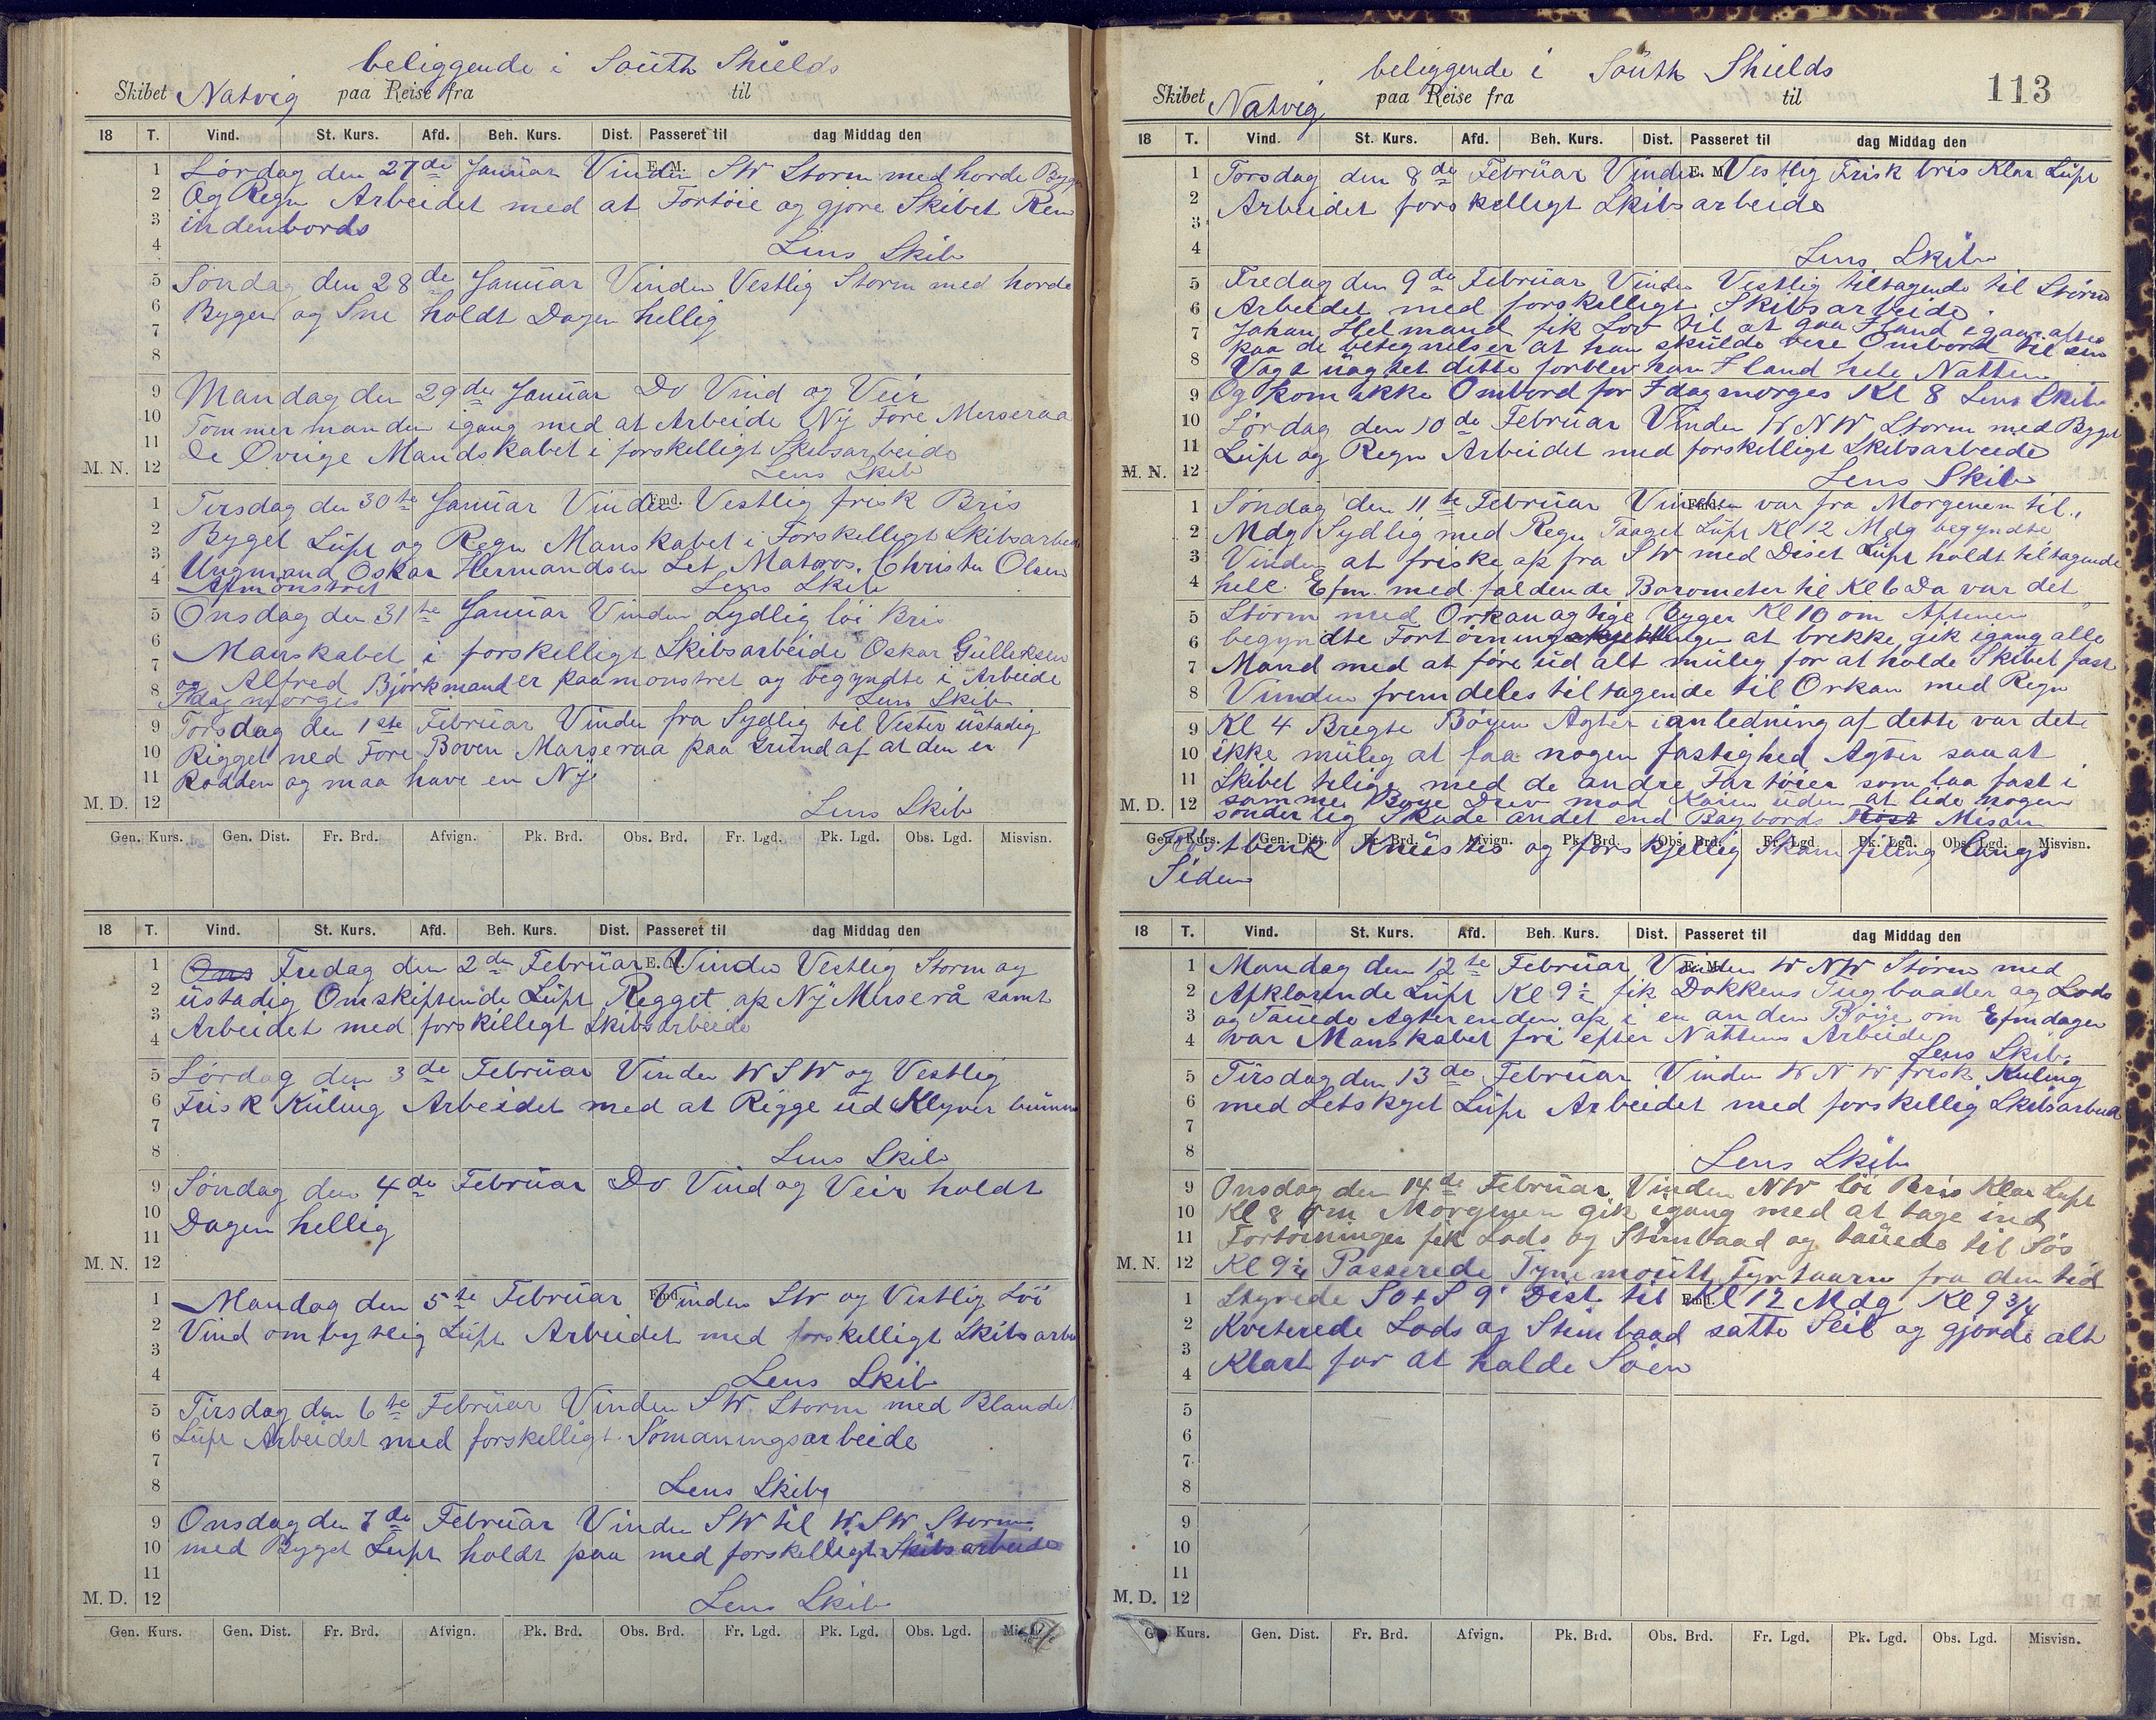 beliggende i South Shields
Skibet Natvig paa Reise fra til
18 T. Vind. St. Kurs. Afd. Beh. Kurs. Dist. Passeret til dag Middag den
E. M.
1 Lørdag den 27de Januar Vinden SW Storm med horde Byger
2 Og Regn Arbeidet med at Fortøie og gjøre Skibet Ren
3 indenbords
4 Lens Skib
5 Søndag den 28de Januar Vinden Vestlig Storm med horde
6 Byger og Sne holdt Dagen hellig
7
8
9 Mandag den 29de Januar Do Vind og Veir
10 Tømmermanden igang med at Arbeide Ny Fore Merseraa
11 De Øvrige Mandskabet i forskelligt Skibsarbeide
M. N. 12 Lens Skib
Emd.
1 Tirsdag den 30te Januar Vinden Vestlig frisk Bris
2 Byget Luft og Regn Manskabet i Forskelligt Skibsarbeide
3 Ungmand Oskar Hermandsen Let Matros. Christen Olsen
4 Afmønstret Lens Skib
5 Onsdag den 31te Januar Vinden Sydlig løi Bris
6 Manskabet i forskelligt Skibsarbeide Oskar Gulleksen
7 og Alfred Bjørkmand er paamønstret og begyndte i Arbeide
8 Idag morges Lens Skib
9 Torsdag den 1ste Februar Vinden fra Sydlig til Vester ustadig
10 Rigget ned Fore Boven Marseraa paa Grund af at den er
11 Rodden og maa have en Ny
M. D. 12 Lens Skib
Gen. Kurs. Gen. Dist. Fr. Brd. Afvign. Pk. Brd. Obs. Brd. Fr. Lgd. Pk. Lgd. Obs. Lgd. Misvisn.
18 T. Vind. St. Kurs. Afd. Beh. Kurs. Dist. Passeret til dag Middag den
E. M.
1 Ons Fredag den 2den Februar Vinden Vestlig Storm og
2 ustadig Omskiftende Luft Rigget op Ny Merserå samt
3 Arbeidet med forskilligt Skibsarbeide
4
5 Lørdag den 3de Februar Vinden WSW og Vestlig
6 Frisk Kuling Arbeidet med at Rigge ud Klyver bummen
7
8 Lens Skib
9 Søndag den 4de Februar Do Vind og Veir holdt
10 Dagen hellig
11
M. N. 12
Emd.
1 Mandag den 5te Februar Vinden SW og Vestlig Løi
2 Vind ombytlig Luft Arbeidet med forskelligt Skibsarbe
3
4 Lens Skib
5 Tirsdag den 6te Februar Vinden SW. Storm med Blandet
6 Luft Arbeidet med forskelligt Sømaningsarbeide
7
8 Lens Skib
9 Onsdag den 7de Februar Vinden SW til W.SW Storm
10 med Byget Luft holdt paa med forskelligt Skibsarbeide
11
M. D. 12 Lens Skib
Gen. Kurs. Gen. Dist. Fr. Brd. Afvign. Pk. Brd. Obs. Brd. Fr. Lgd. Pk. Lgd. Obs. Lgd.
beliggende i South Shields
Skibet Natvig paa Reise fra til 113
18 T. Vind. St. Kurs. Afd. Beh. Kurs. Dist. Passeret til dag Middag den
E. M.
1 Torsdag den 8de Februar Vinden Vestlig Frisk bris Klar Luft
2 Arbeidet forskelligt Skibsarbeide
3
4 Lens Skib
5 Fredag den 9de Februar Vinden Vestlig tiltagende til Storm
6 Arbeidet med forskelligt Skibsarbeide.
7 Johan Helmand fik Lov til at gaa Iland igaar aftes
paa de betegnelser at han skulde vere Ombord til sin
8 Vagt uagtet dette forblev han Iland hele Natten
9 Og kom ikke Ombord for Idag morges Kl 8 Lens Skib
10 Lørdag den 10de Februar Vinden WNW Storm med Byget
11 Luft og Regn Arbeidet med forskelligt Skibsarbeide
M. N. 12 Lens Skib
Emd.
1 Søndag den 11te Februar Vinden var fra Morgenen til
2 Mdg Sydlig med Regn Taaget Luft Kl 12 Mdg begyndte
3 Vinden at friske op fra SW med Diset Luft holdt tiltagende
4 hele Efm. med faldende Barometer til Kl 6 Da var det
5 Storm med Orkanagtige Byger Kl 10 om Aftenen
6 begyndte Fortøinings at brekke, gik igang alle
7 Mand med at føre ud alt mulig for at holde Skibet fast
8 Vinden fremdeles tiltagende til Orkan med Regn
9 Kl 4 Bregte Bøyen Agter i anledning af dette var dete
10 ikke muleg at faa nogen fastighed Agter saa at
11 Skibet telige med de andre Fartøier som laa fast i
M. D. 12 samme Boye Drev mod Kaien uden at lide nogen
sønderleg Skade andet end Bagbords Røst Mesan
Gen. Kurs. Gen. Dist. Fr. Brd. Afvign. Pk. Brd. Obs. Brd. Fr. Lgd. Pk. Lgd. Obs. Lgd. Misvisn.
Røstbenk Knustes og forskjellig Skamfiling langs
Siden
18 T. Vind. St. Kurs. Afd. Beh. Kurs. Dist. Passeret til dag Middag den
E. M.
1 Mandag den 12te Februar Vinden WNW Storm med
2 Afklarende Luft Kl 9 fik Dokkens Tugbaader og Lods
3 og Tauede Agterenden op i en anden Böije om Efmdagen
4 var Manskabet fri efter Nattens Arbeide
Lens Skib.
5 Tirsdag den 13de Februar Vinden WNW frisk Kuling
6 med Letskyet Luft Arbeidet med forskellig Skibsarbeid
7
8 Lens Skib
9 Onsdag den 14de Februar Vinden NW løi Bris Klar Luft
10 Kl 8 Om Morgenen gik igang med at tage ind
11 Fortøininger fik Lods og Stimbaad og tauede til Søs
M. N. 12 Kl 9¼ Passerede Tynemouth Fyrtaarn fra den tid
Emd.
1 Styrede SOtS 9' Dist. til Kl 12 Mdg Kl 9 3/4
2 Kviterede Lods og Stimbaad satte Seil og gjorde alt
3 Klart for at holde Søen
4
5
6
7
8
9
10
11
M. D. 12
Kurs. Gen. Dist. Fr. Brd. Afvign. Pk. Brd. Obs. Brd. Fr. Lgd. Pk. Lgd. Obs. Lgd. Misvisn.